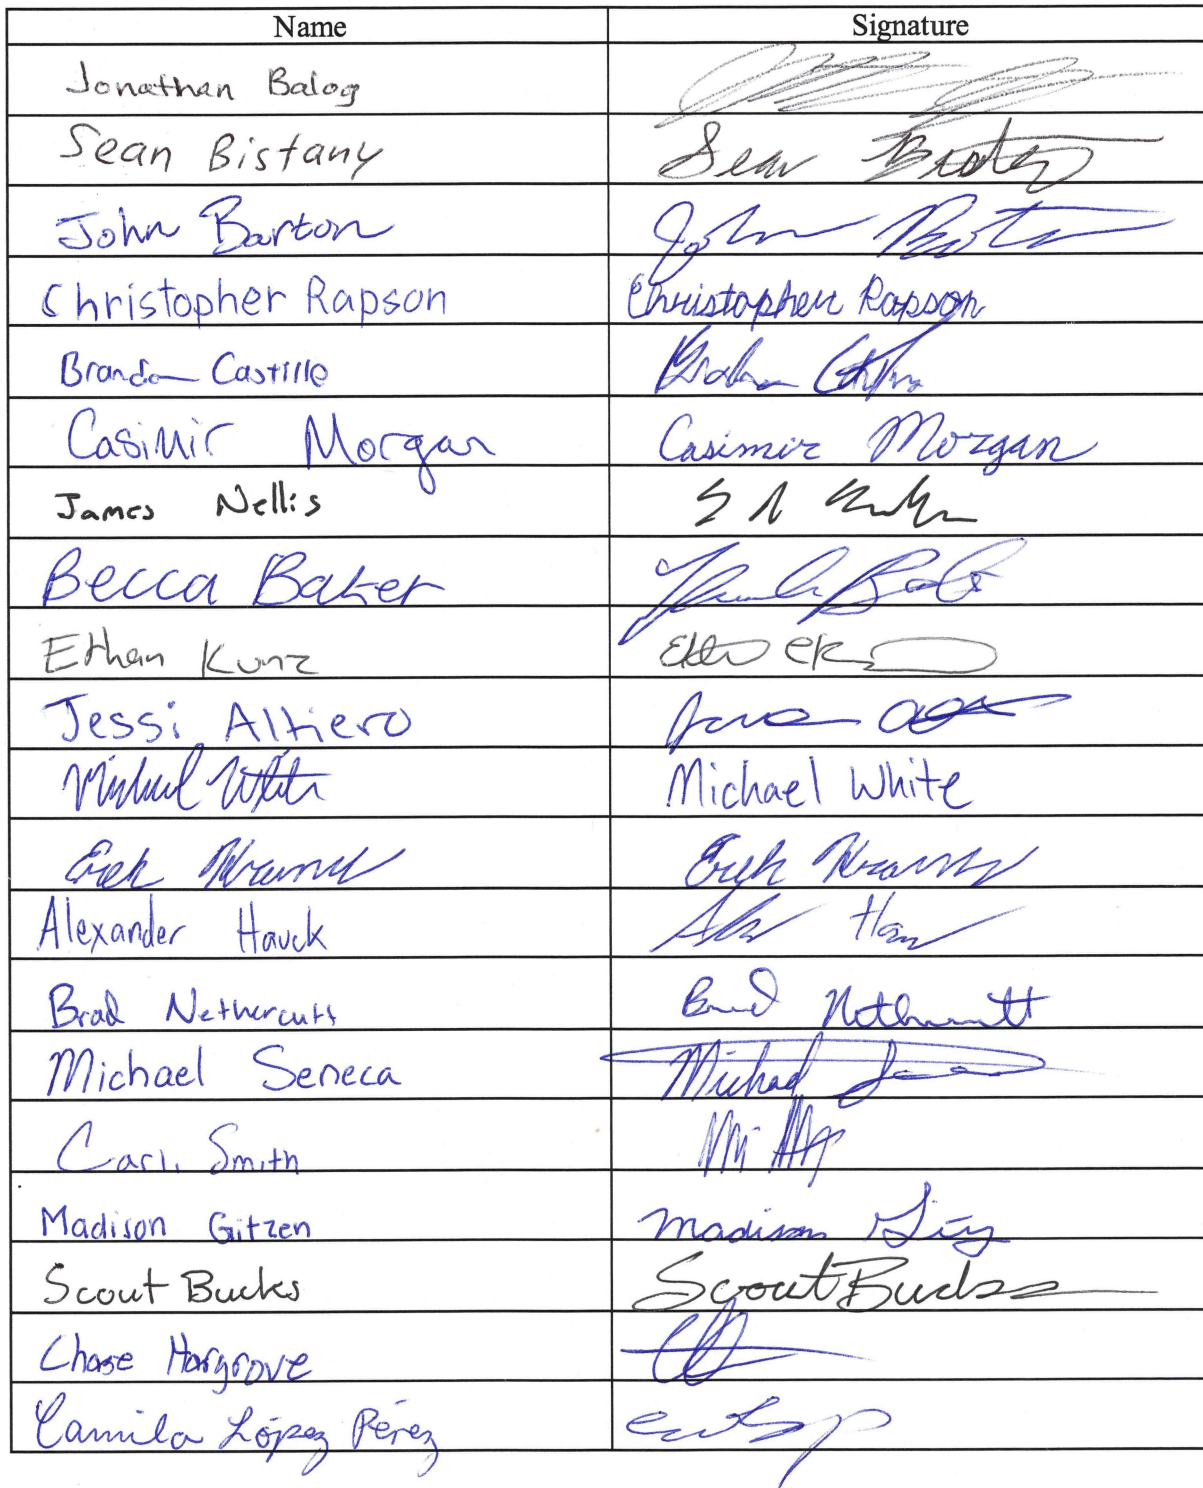 Name Signature
Jonathan Balog
Sean Bistany Sean
John Barton John
Christopher Rapson Christopher Rapson
Brandon Castillo
Casimir Morgan Casimir Morgan
James Nellis
Becca Baker
Ethan Kunz
Jessi Altiero
Michael White Michael White
Erik Erik
Alexander Hauck
Brad Nethercutt Brad Nethercutt
Michael Seneca Michael
Carli Smith
Madison Gitzen Madison
Scout Bucks Scout Bucks
Chase Hargrove
Camila López Pérez